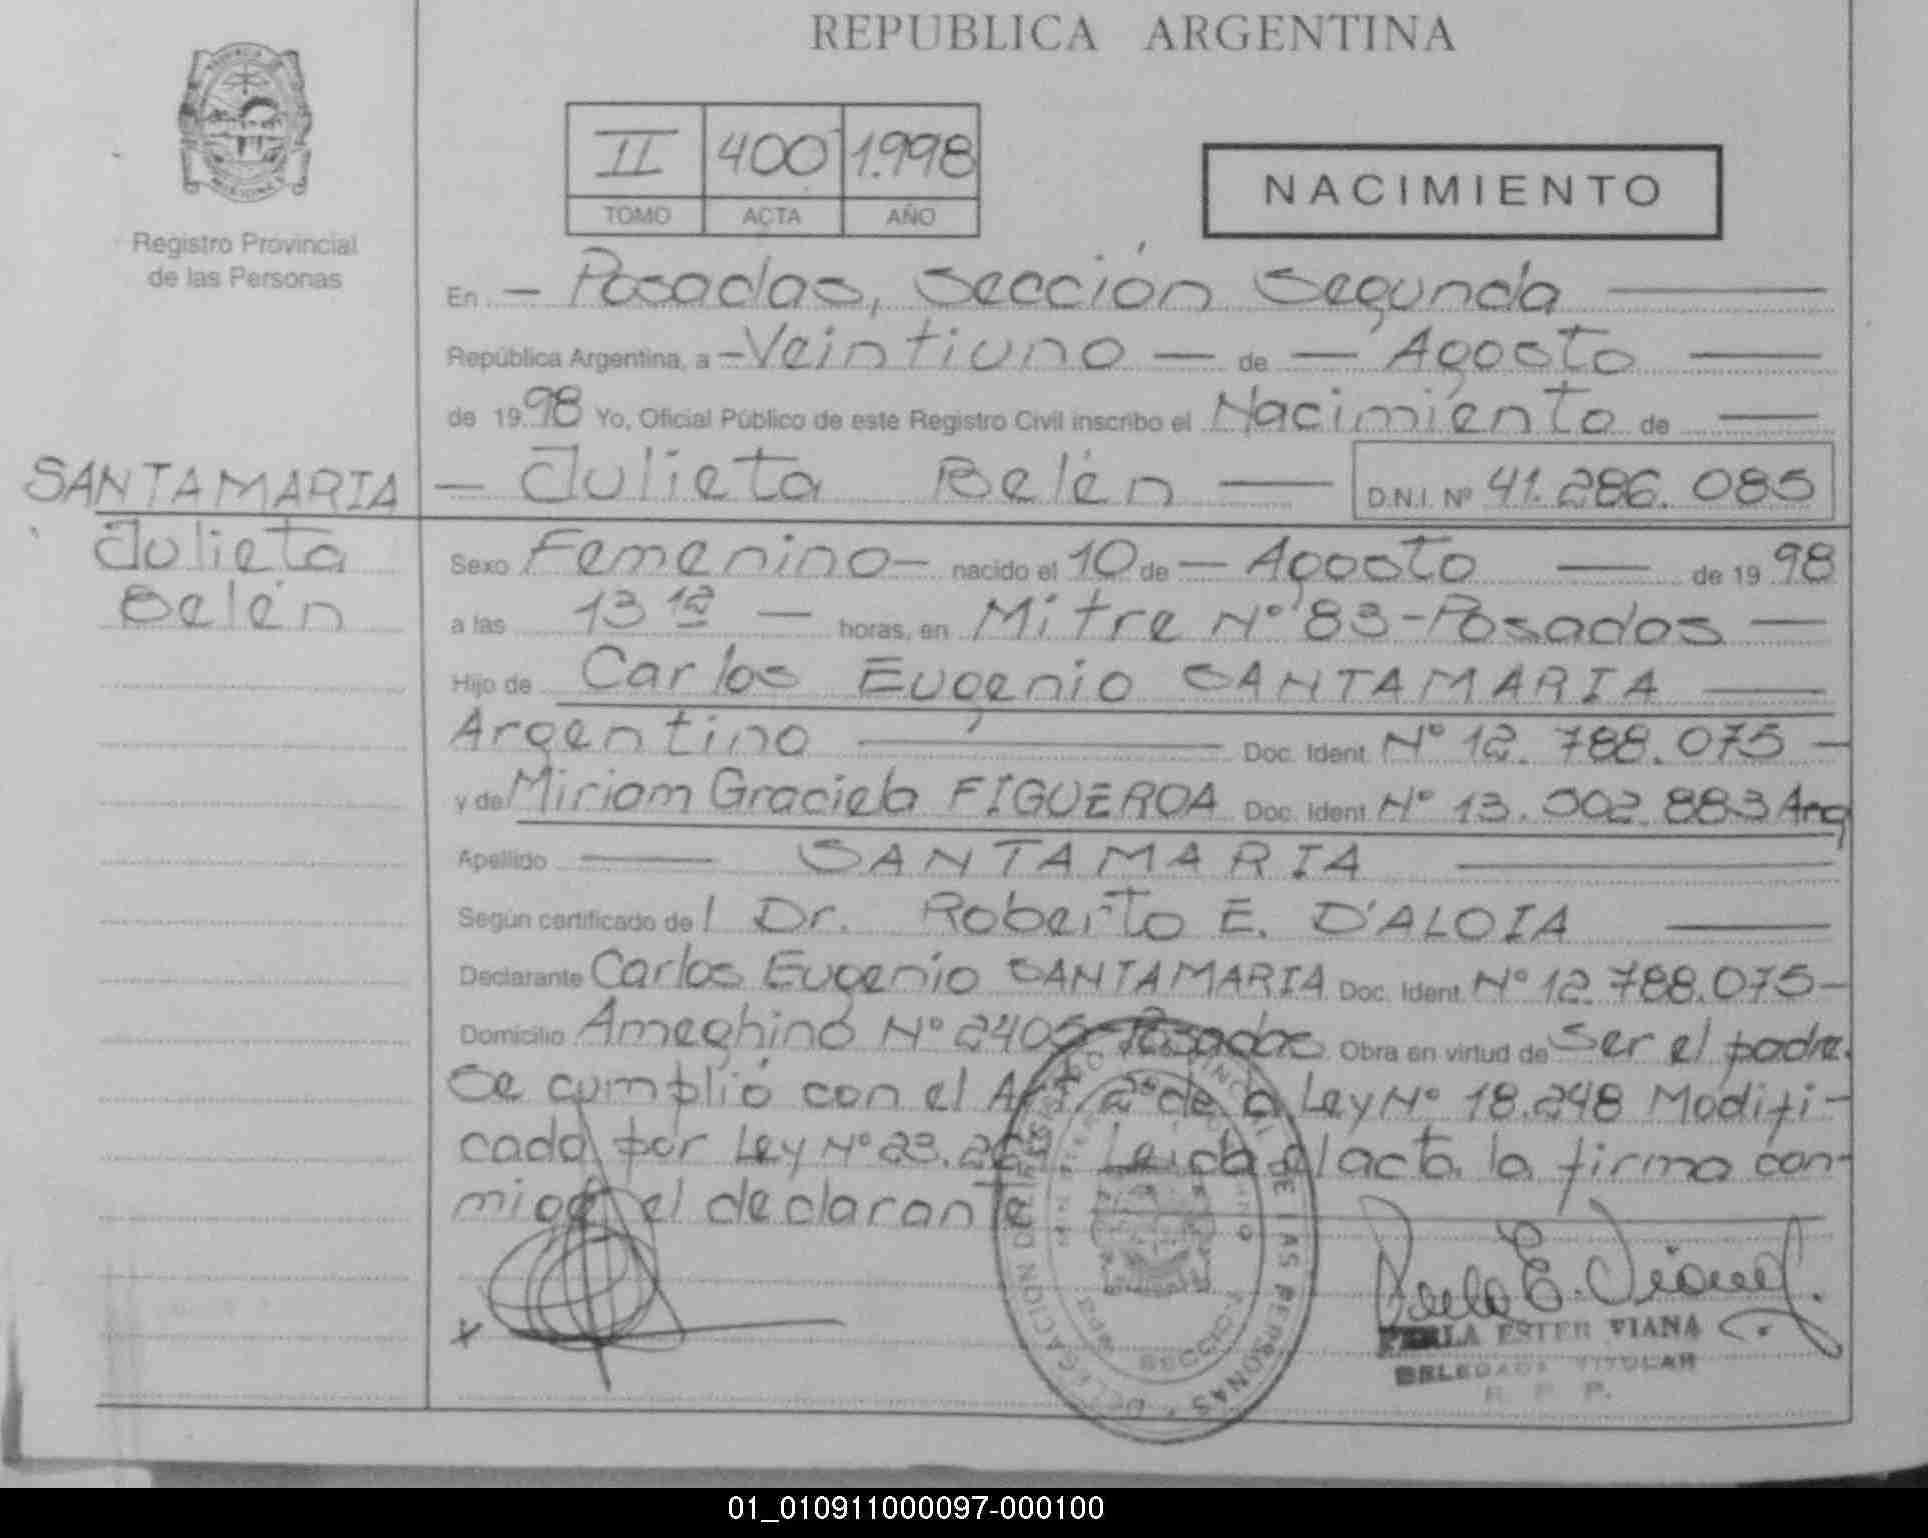 REPUBLICA ARGENTINA
II 400 1.998
TOMO ACTA AÑO
NACIMIENTO
Registro Provincial
de las Personas
En - Posadas, Sección Segunda
República Argentina, a - Veintiuno - de - Agosto
de 1998 Yo, Oficial Público de este Registro Civil inscribo el Nacimiento de
SANTAMARIA
Julieta
Belén
- Julieta Belén - D.N.I. Nº 41.286.085
Sexo Femenino - nacido el 10 de - Agosto - de 1998
a las 13 12 - horas, en Mitre Nº 83 - Posadas -
Hijo de Carlos Eugenio SANTAMARIA
Argentino - Doc. Ident. Nº 12.788.075 -
y de Miriam Graciela FIGUEROA Doc. Ident. Nº 13.002.883 Arg
Apellido - SANTAMARIA
Según certificado del Dr. Roberto E. D'ALOIA
Declarante Carlos Eugenio SANTAMARIA Doc. Ident. Nº 12.788.075 -
Domicilio Ameghino Nº 2405 - Posadas Obra en virtud de Ser el padre.
Se cumplió con el Art. 2º de la Ley Nº 18.248 Modifi-
cada por Ley Nº 23. Leída el acta la firma con-
migo el declarante
PERLA ESTER VIANA
DELEGADA TITULAR
R. P. P.
DE LAS PERSONAS
DELEGACION
SECCION
01_010911000097-000100